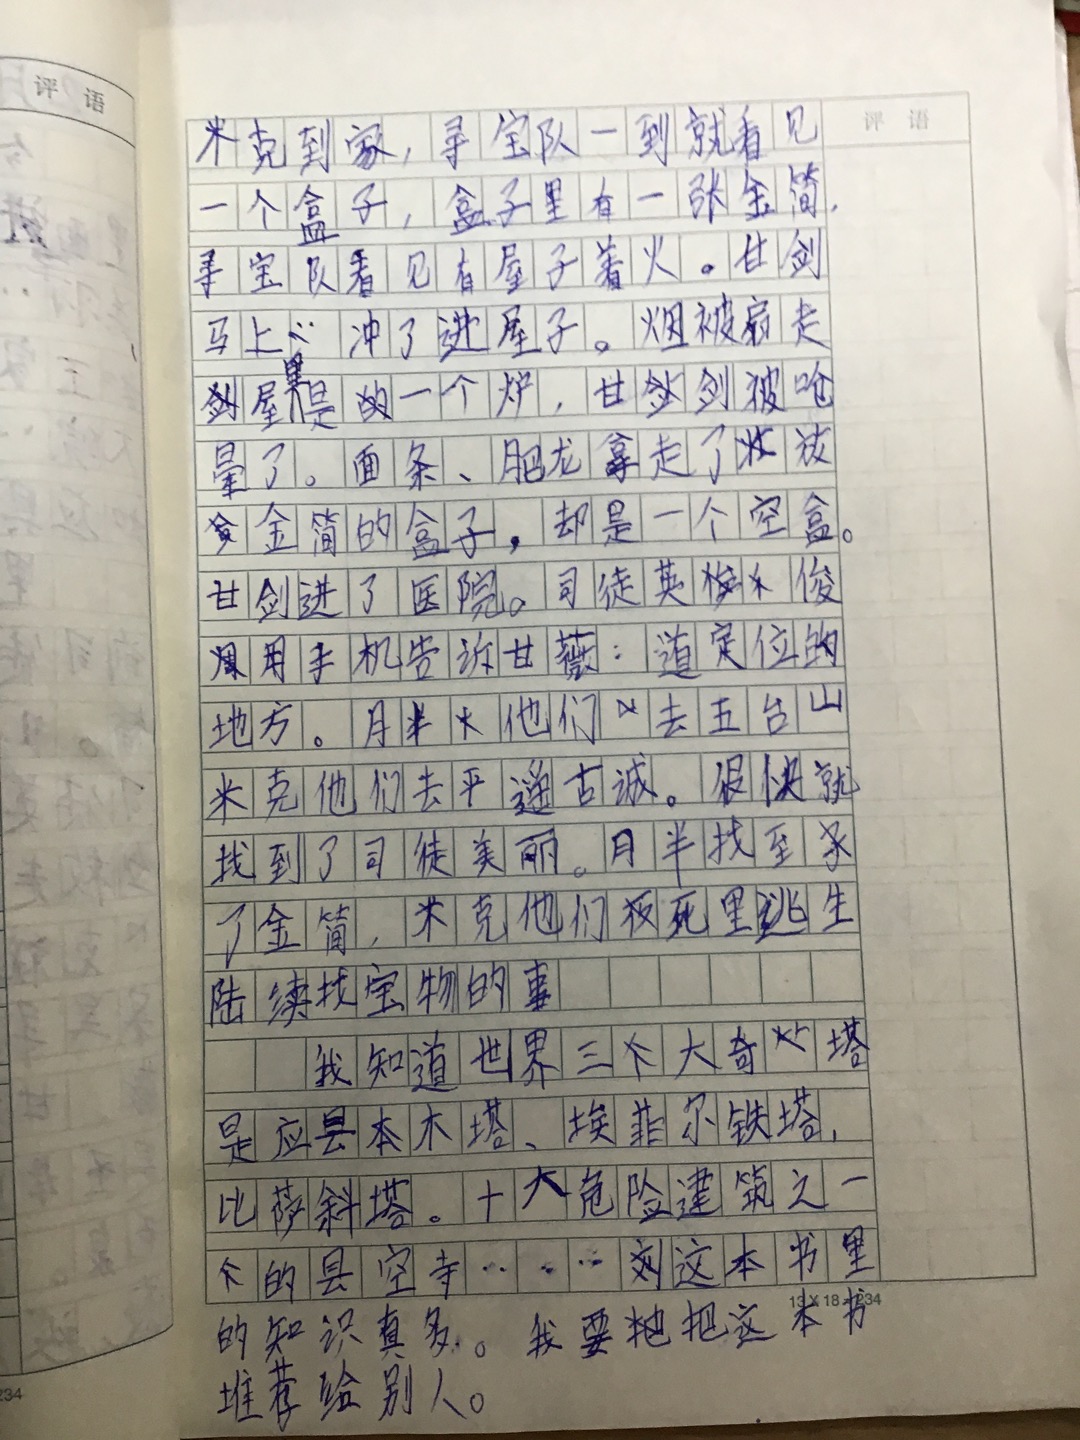 评语
评语
米克到家，寻宝队一到就看见
一个盒子，盒子里有一张金简，
寻宝队看见有屋子着火。甘剑
马上冲了进屋子。烟被扇走
屋里是一个炉，甘剑被呛
晕了。面条、胖龙拿走了放
金简的盒子，却是一个空盒。
甘剑进了医院。司徒英俊
用手机告诉甘薇：道定位的
地方。月半他们去五台山
米克他们去平遥古诚。很快就
找到了司徒美丽。月半找至
了金简，米克他们死里逃生
陆续找宝物的事
我知道世界三个大奇塔
是应县木塔、埃菲尔铁塔，
比萨斜塔。十大危险建筑之一
个的县空寺………这本书里
13×18=234
的知识真多。我要把这本书
推荐给别人。
234